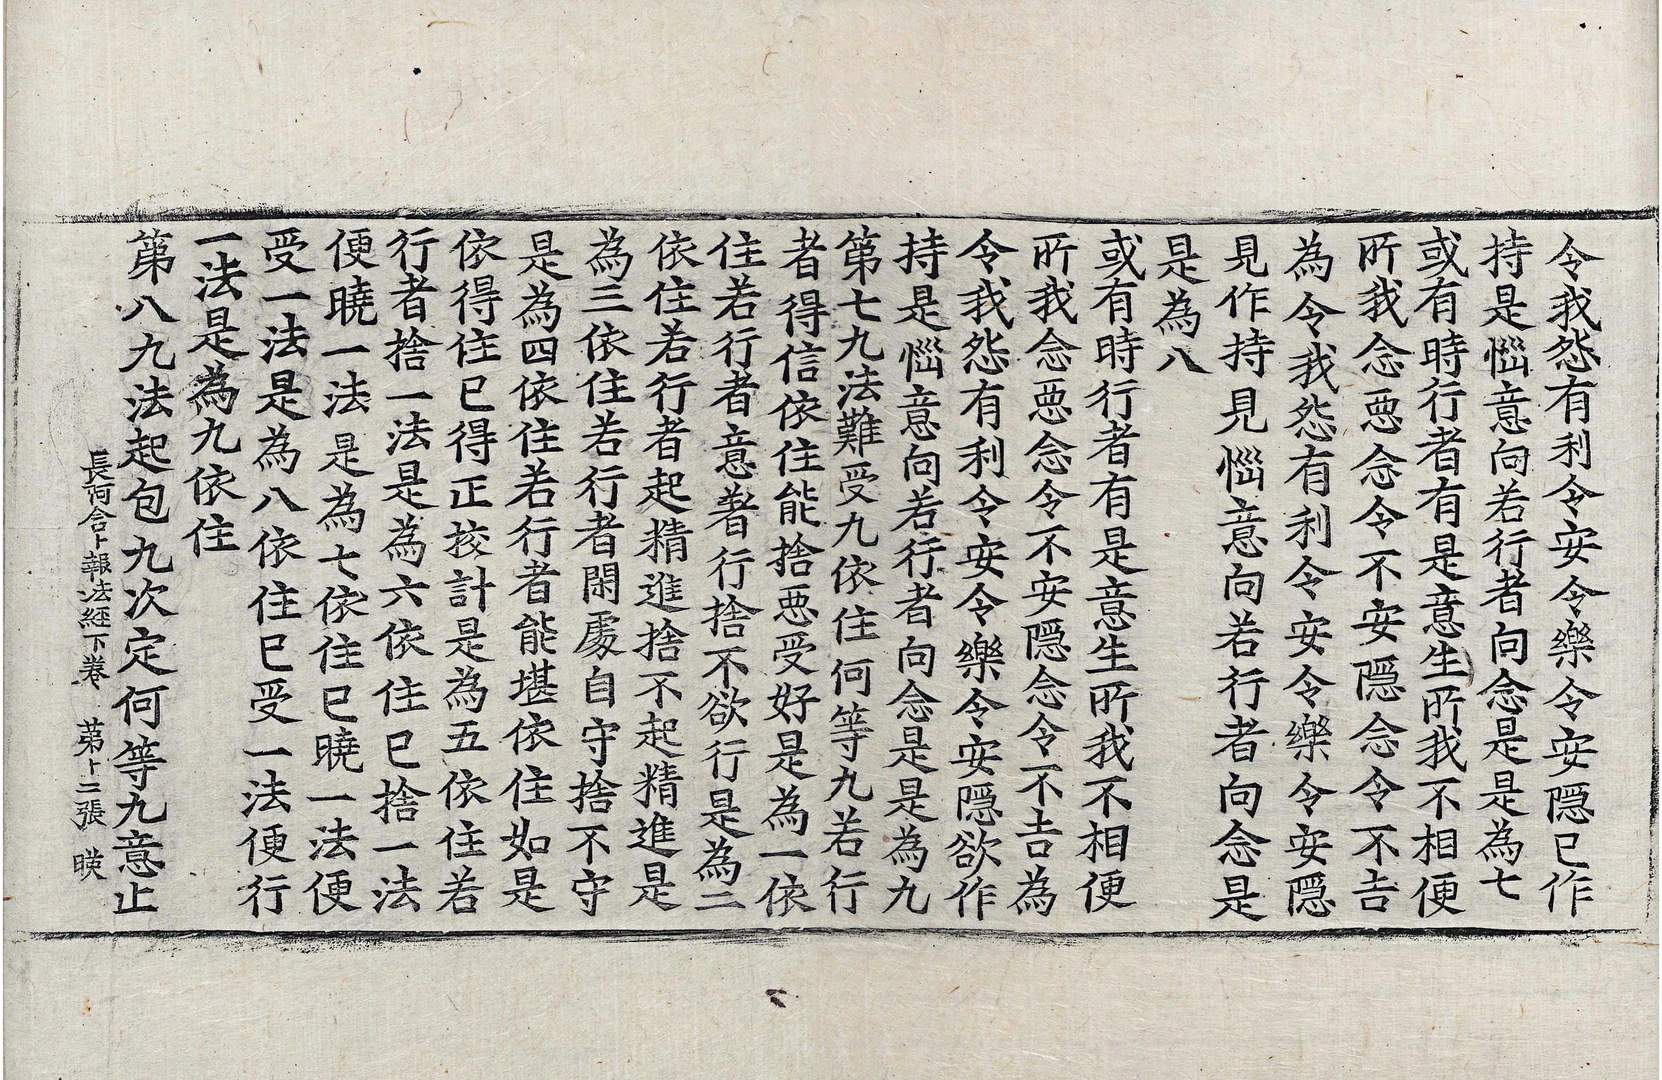 令我怨有利令安令樂令安隱已作
持是惱意向若行者向念是是為七
或有時行者有是意生所我不相便
所我念惡念令不安隱念令不吉
為令我怨有利令安令樂令安隱
見作持見惱意向若行者向念是
是為八
或有時行者有是意生所我不相便
所我念惡念令不安隱念令不吉為
令我怨有利令安令樂令安隱欲作
持是惱意向若行者向念是是為九
第七九法難受九依住何等九若行
者得信依住能捨惡受好是為一依
住若行者意著行捨不欲行是為二
依住若行者起精進捨不起精進是
為三依住若行者閑處自守捨不守
是為四依住若行者能堪依住如是
依得住已得正挍計是為五依住若
行者捨一法是為六依住已捨一法
便曉一法是為七依住已曉一法便
受一法是為八依住已受一法便行
一法是為九依住
第八九法起包九次定何等九意止
長阿含十報法經下卷 苐十二張 暎